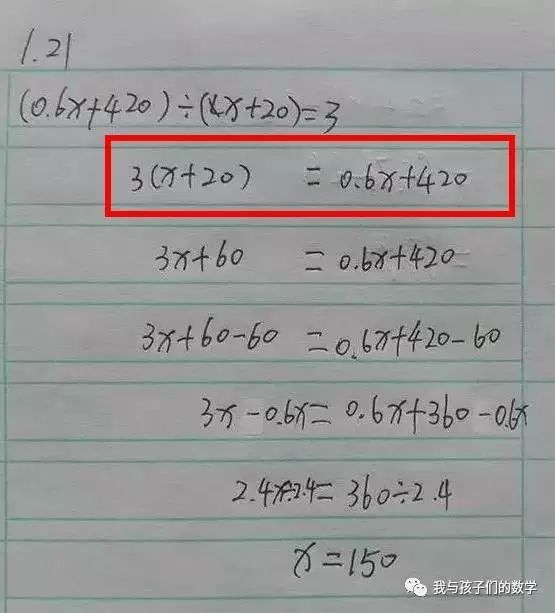 1.21
(0.6x+420)÷(x+20)=3
3(x+20) = 0.6x+420
3x+60 = 0.6x+420
3x+60-60 = 0.6x+420-60
3x-0.6x= 0.6x+360-0.6x
2.4x÷2.4= 360÷2.4
x=150
我与孩子们的数学